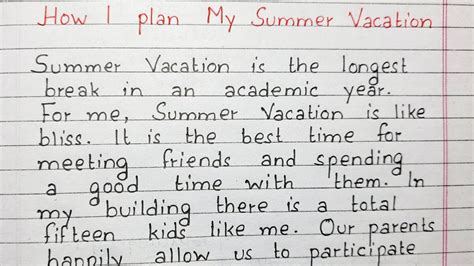 How I plan My Summer Vacation
Summer Vacation is the longest
break in an academic year.
For me, Summer Vacation is like
bliss. It is the best time for
meeting friends and spending
a good time with them. In
my building there is a total
fifteen kids like me. Our parents
happily allow us to participate